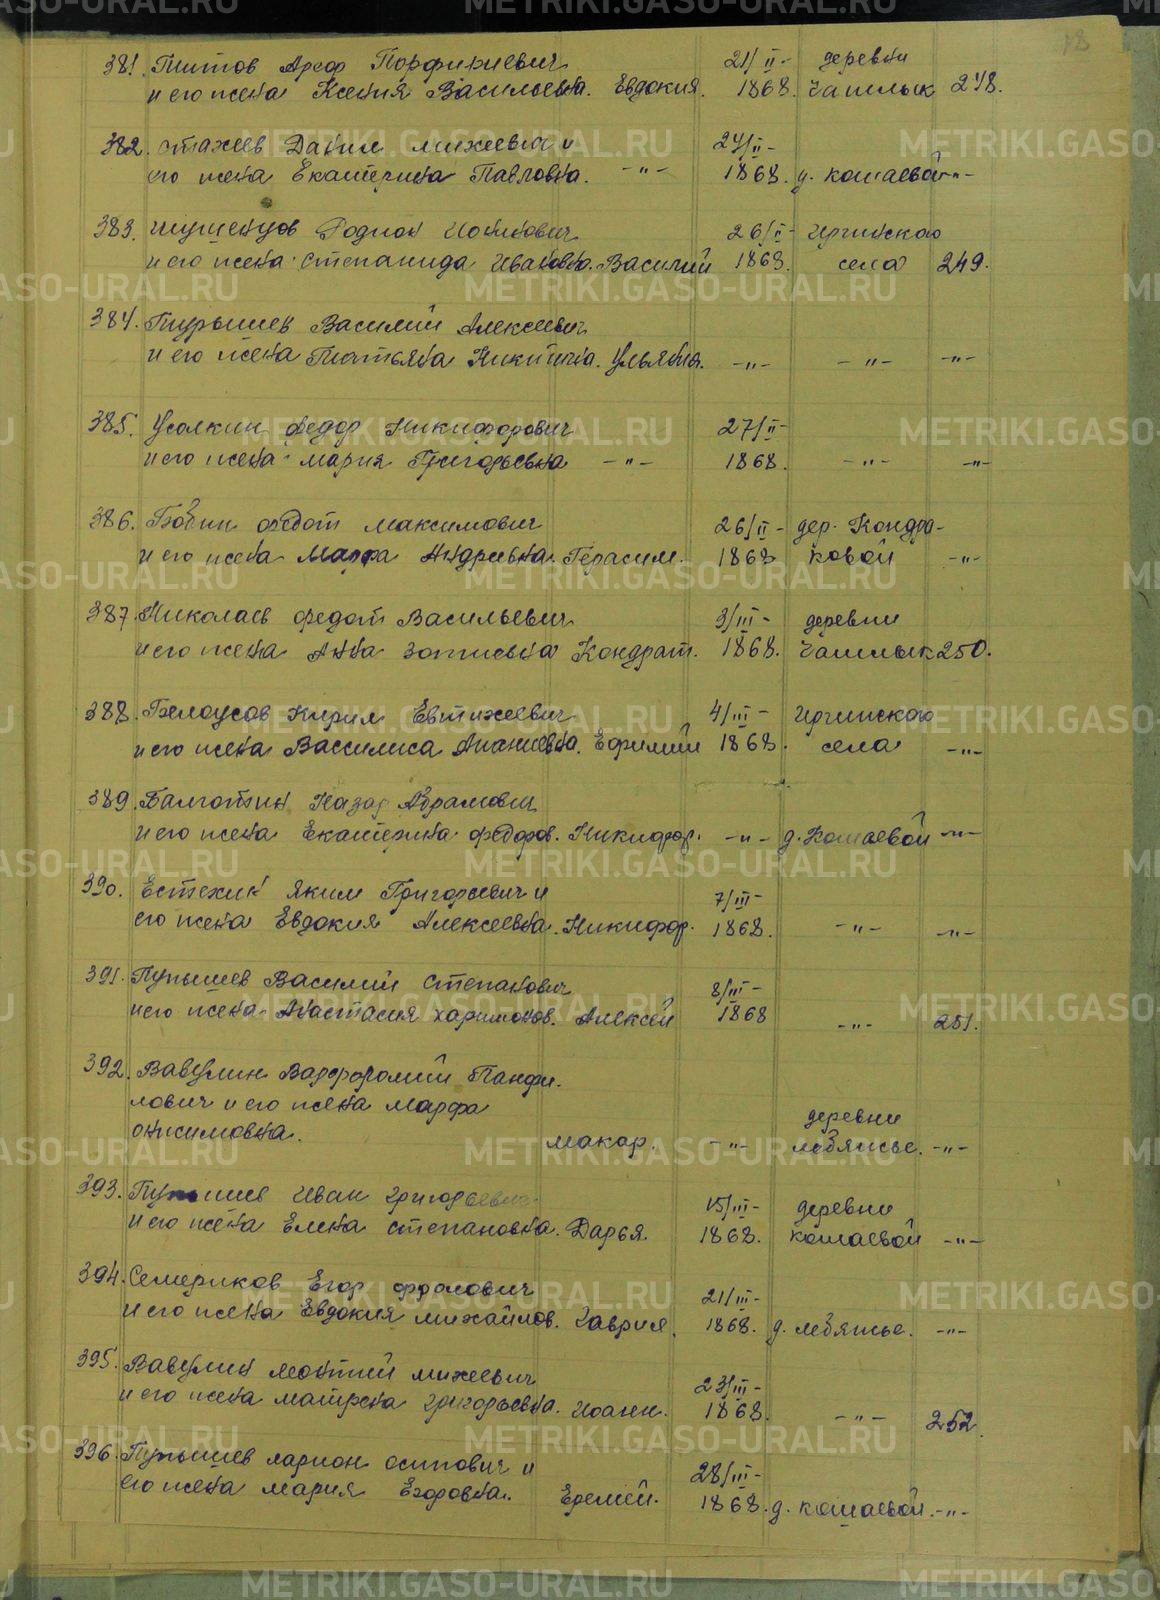 18
381. Титов Арефр Порфириевич 21/II- деревни
и его жена Ксения Васильевна. Евдокия. 1868. Чашлык 248.
382. Стахеев Данил Михеевич и 24/II-
его жена Екатерина Павловна. -"- 1868. д. Кошаевой -"-
383. Шушенцов Родион Иоаннович 26/II- Иргинскаго
и его жена Степанида Ивановна. Василий 1868. села 249.
384. Пупышев Василий Алексеевич
и его жена Татьяна Никитична. Ульяния. -"- -"- -"-
385. Усолкин Федор Никифорович 27/II-
и его жена Мария Григорьевна -"- 1868. -"- -"-
386. Бабин Федот Максимович 26/II- дер. Кондра-
и его жена Марфа Андриевна. Герасим. 1868 ковой -"-
387. Николаев Федот Васильевич 3/III- деревни
и его жена Анна Зотиевна Кондрат. 1868. Чашлык 250.
388. Белоусов Кирил Евтихеевич 4/III- Иргинскаго
и его жена Вассилиса Ананиевна. Ефимий 1868. села -"-
389. Назар Абрамович
и его жена Екатерина Федоров. Никифор. -"- д. Кошаевой -"-
390. Естехин Яким Григорьевич и 7/III-
его жена Евдокия Алексеевна. Никифор. 1868. -"- -"-
391. Пупышев Василий Степанович 8/III-
и его жена Анастасия Харитонов. Алексей 1868 -"- 251.
392. Вавулин Варфоломий Панфи-
лович и его жена Марфа деревни
Онисимовна. Макар. -"- Лебяжье. -"-
393. Пупышев Иван Григорьевич 15/III- деревни
и его жена Елена Степановна. Дарья. 1868. Кошаевой -"-
394. Семериков Егор Фролович 21/III-
и его жена Евдокия Михайлов. Гаврил. 1868. д. Лебяжье. -"-
395. Вавулин Леонтий Михеевич 23/III-
и его жена Матрена Григорьевна. Иоанн. 1868. -"- 252.
396. Пупышев Ларион Осипович и 28/III-
его жена Мария Егоровна. Еремей. 1868. д. Кошаевой. -"-
METRIKI.GASO-URAL.RU